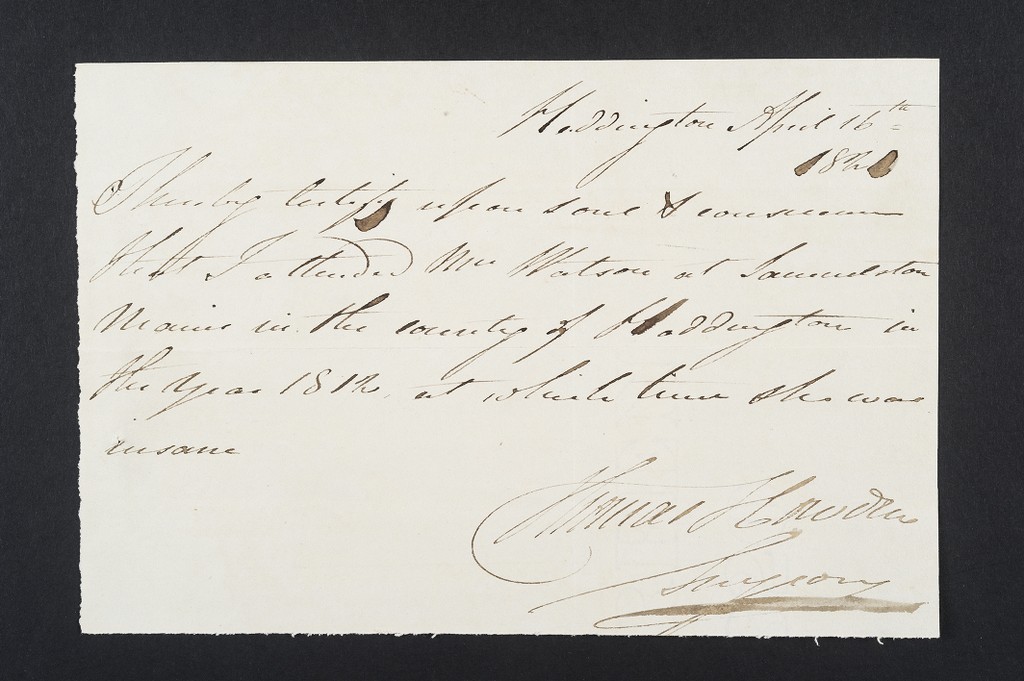 Haddington April 16th
182
I hereby certify upon soul & conscience
that I attended Mrs Watson at Samuelston
Mains in the county of Haddington in
the year 1812, at which time she was
insane
Thomas Howden
Surgeon